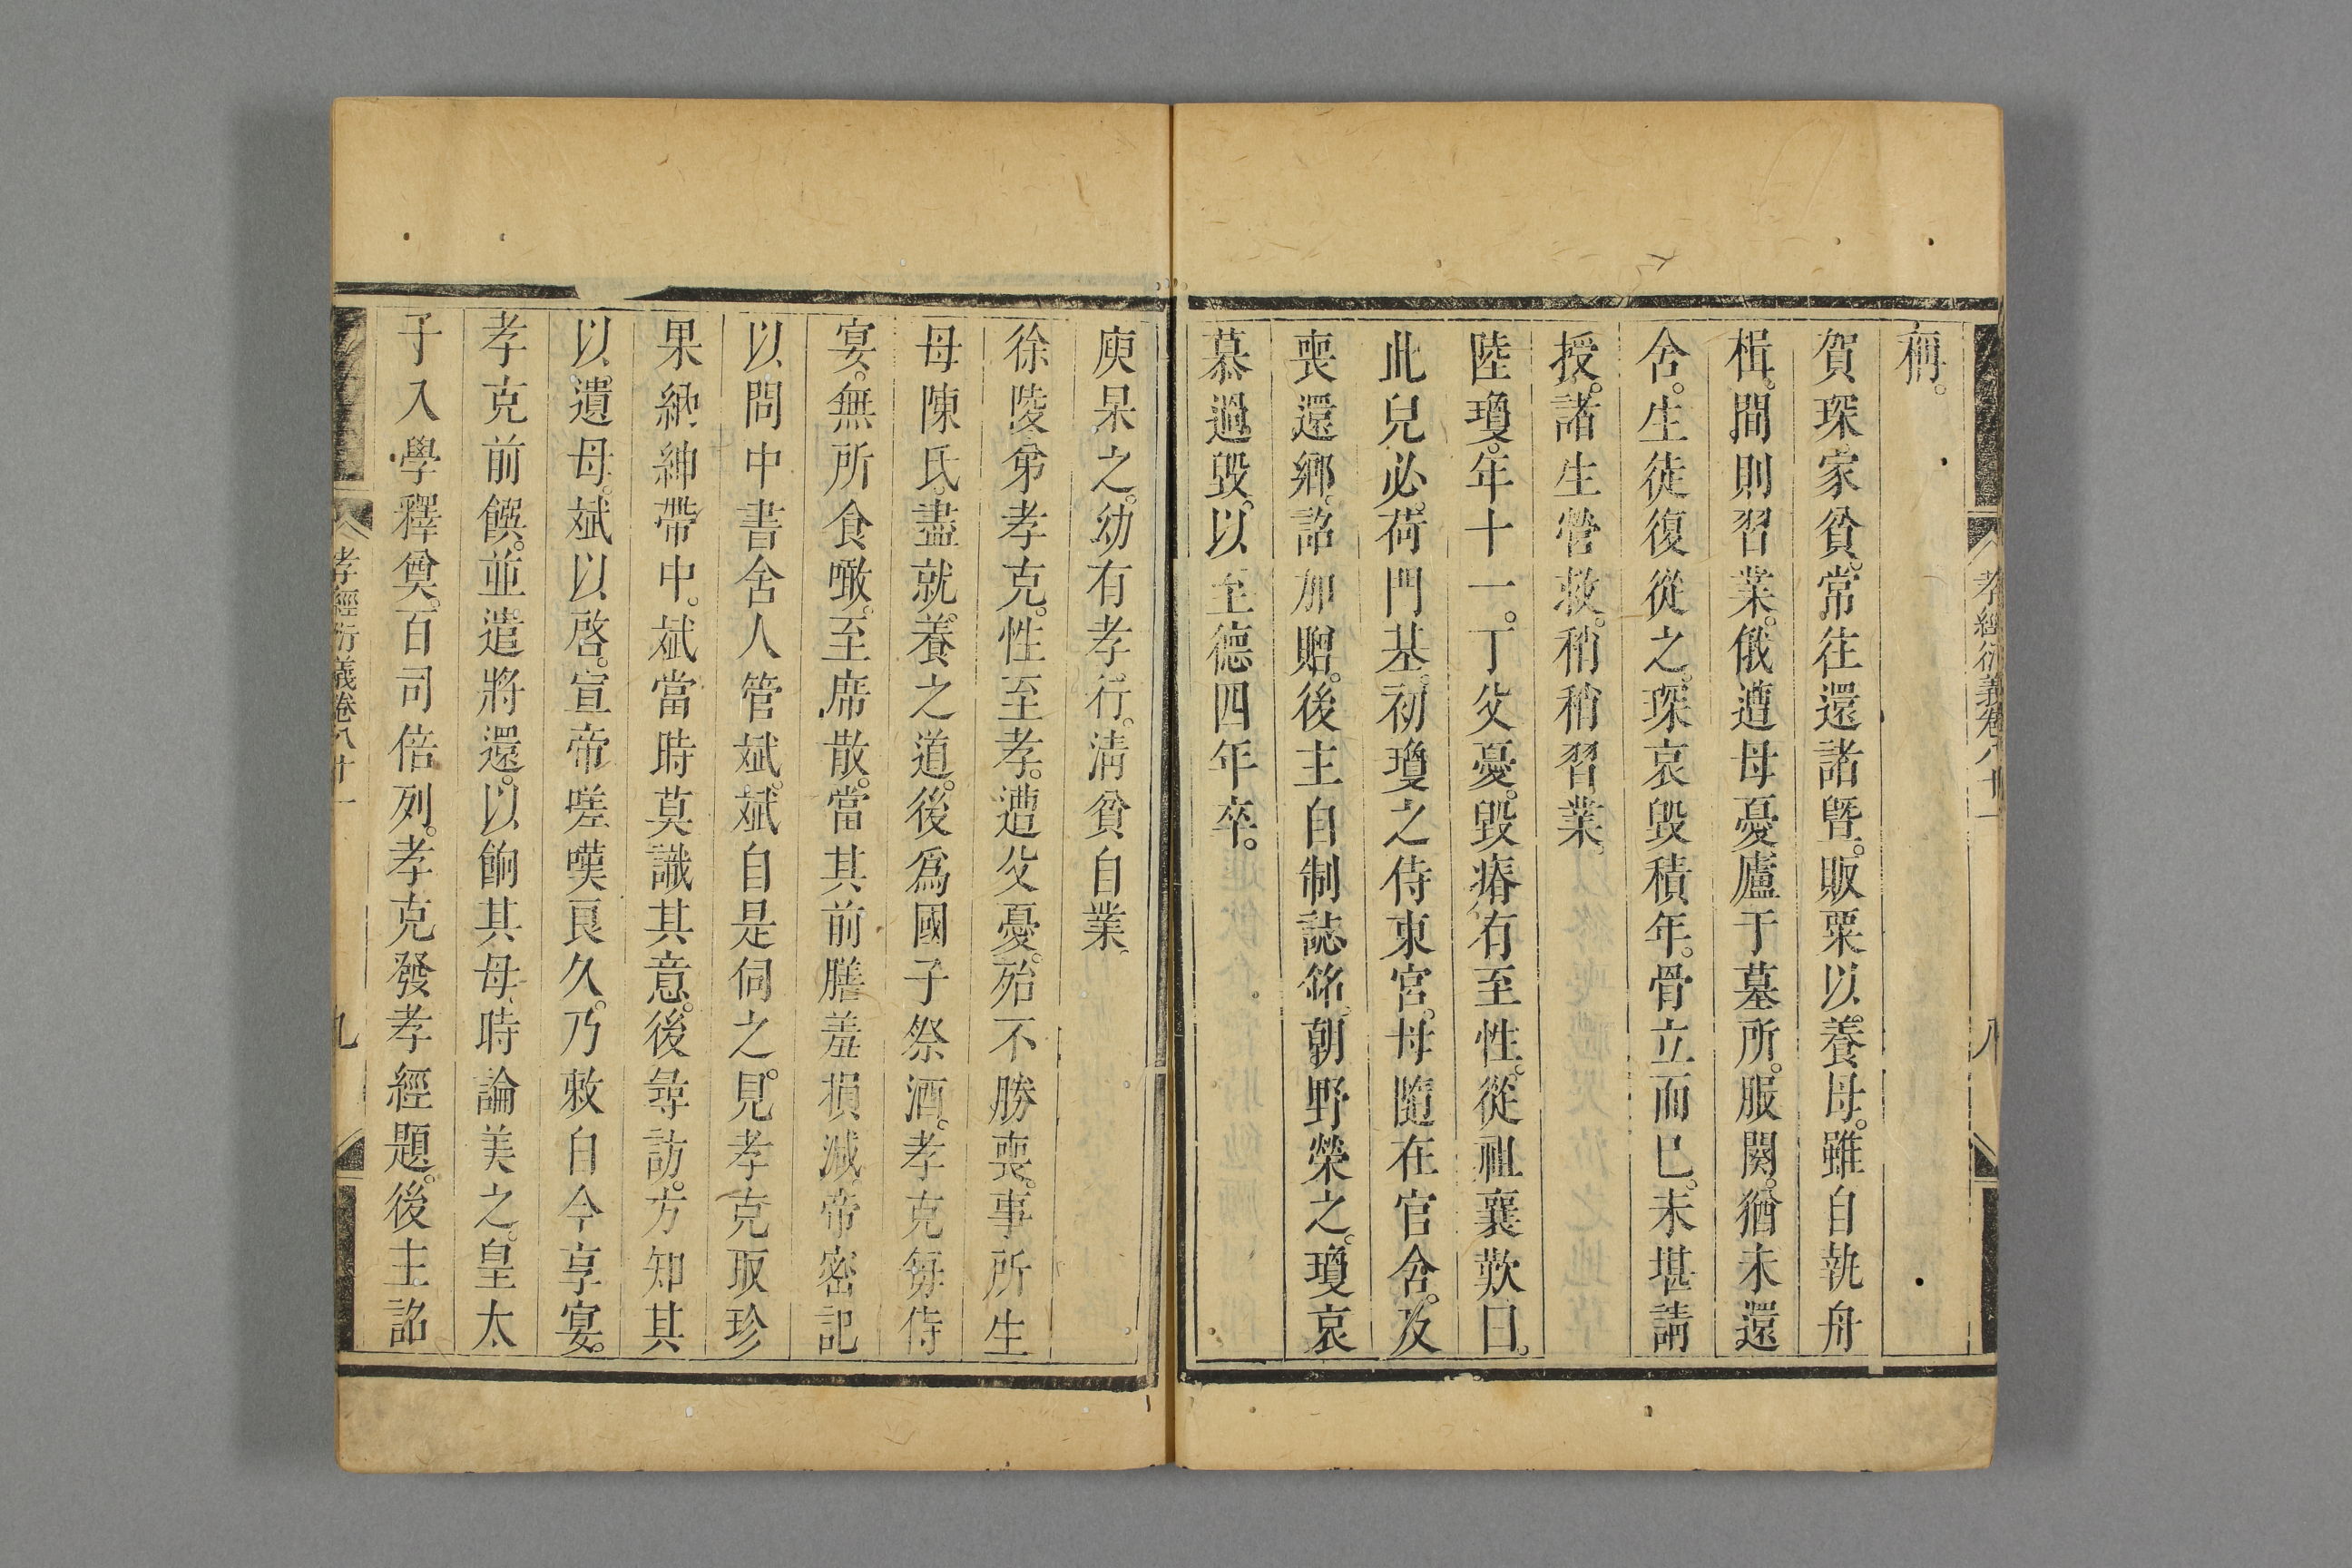 孝經衍義卷八十一 八
稱。
賀琛家貧。常往還諸暨。販粟以養母。雖自執舟
楫。間則習業。俄遭母憂廬于墓所。服闋。猶未還
舍。生徒復從之。琛哀毀積年。骨立而已。未堪講
授。諸生營救。稍稍習業。
陸瓊。年十一。丁父憂。毀瘠有至性。從祖襄歎曰。
此兒必荷門基。初瓊之侍東宮。母隨在官舍。及
喪還鄉。詔加贈。後主自制誌銘。朝野榮之。瓊哀
慕過毀。以至德四年卒。
庾杲之。幼有孝行。清貧自業。
徐陵弟孝克。性至孝。遭父憂。殆不勝喪。事所生
母陳氏。盡就養之道。後爲國子祭酒。孝克每侍
宴。無所食噉。至席散。當其前膳羞損減。帝密記
以問中書舍人管斌。斌自是伺之。見孝克取珍
果納紳帶中。斌當時莫識其意。後尋訪。方知其
以遺母。斌以啓。宣帝嗟嘆良久。乃敕自今享宴。
孝克前饌。並遣將還。以餉其母。時論美之。皇太
子入學釋奠。百司倍列。孝克發孝經題。後主詔
孝經衍義卷八十一 九